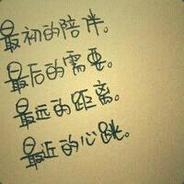 最初的陪伴。
最后的需要。
最远的距离。
最近的心跳。